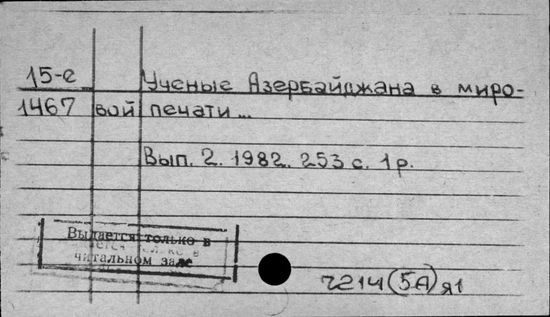 15-е Ученые Азербайджана в миро-
1467 вой печати...
Вып. 2. 1982. 253 с. 1 р.
Выдается только в
читальном зале
Ч214(5А)я1